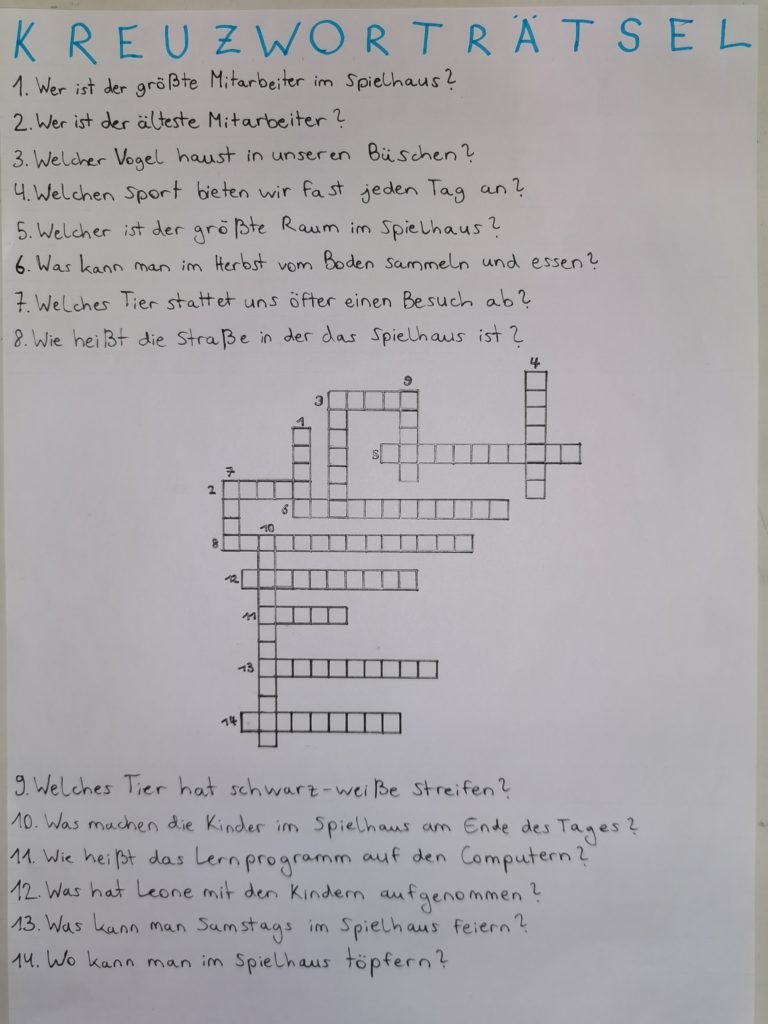 KREUZWORTRÄTSEL
1. Wer ist der größte Mitarbeiter im Spielhaus?
2. Wer ist der älteste Mitarbeiter?
3. Welcher Vogel haust in unseren Büschen?
4. Welchen Sport bieten wir fast jeden Tag an?
5. Welcher ist der größte Raum im Spielhaus?
6. Was kann man im Herbst vom Boden sammeln und essen?
7. Welches Tier stattet uns öfter einen Besuch ab?
8. Wie heißt die Straße in der das Spielhaus ist?
4
9
3
1
5
7
2
6
10
8
12
11
13
14
9. Welches Tier hat schwarz-weiße Streifen?
10. Was machen die Kinder im Spielhaus am Ende des Tages?
11. Wie heißt das Lernprogramm auf den Computern?
12. Was hat Leone mit den Kindern aufgenommen?
13. Was kann man Samstags im Spielhaus feiern?
14. Wo kann man im Spielhaus töpfern?